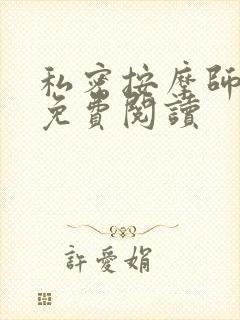 私密按摩師
免費閱讀
許愛娟